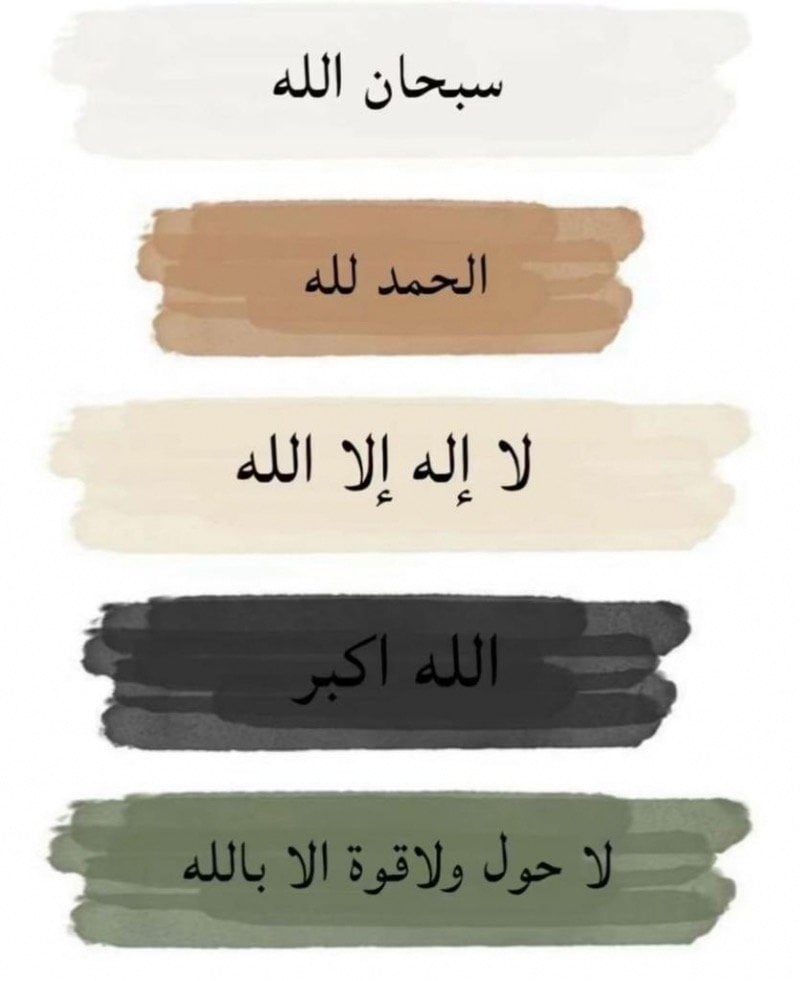 سبحان الله
الحمد لله
لا إله إلا الله
الله اكبر
لا حول ولاقوة الا بالله